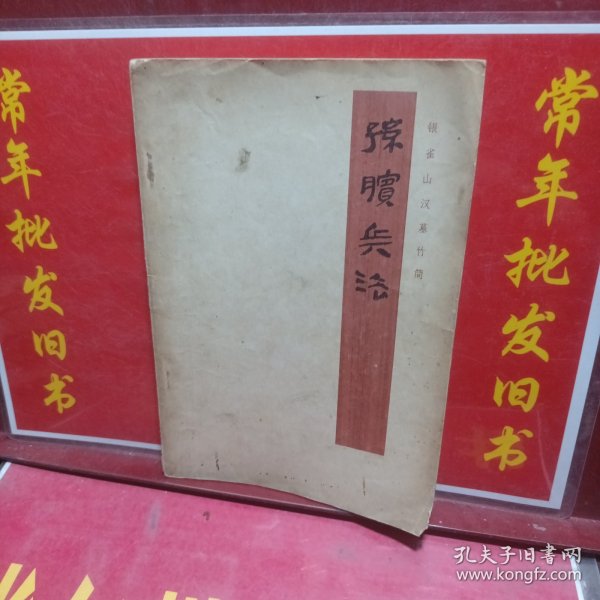 常年批发旧书
孫臏兵法
银雀山汉墓竹简
常年批发旧书
孔夫子旧书网
www.kongfz.com